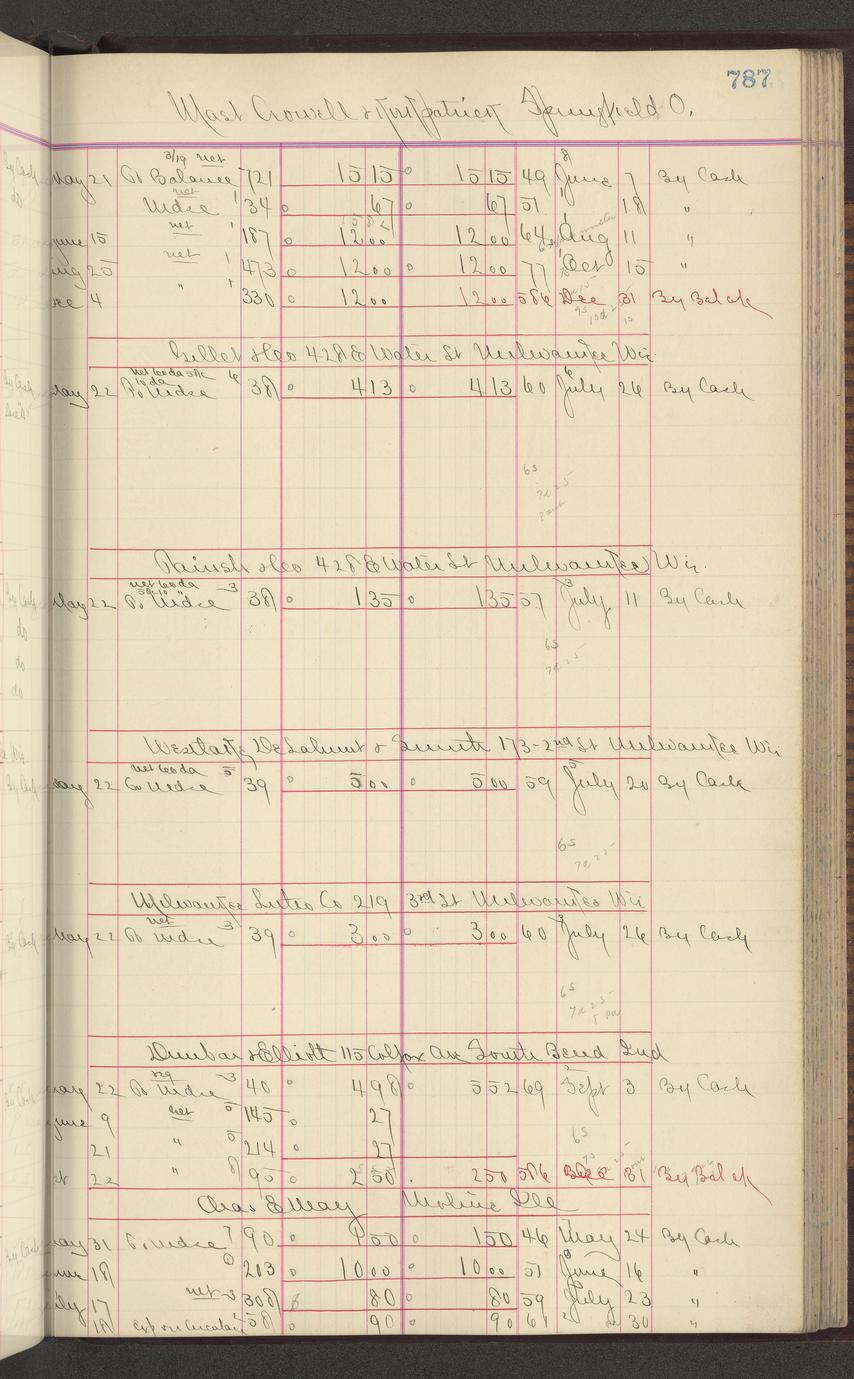 787
Mast Crowell & Kirkpatrick Springfield O.
3/19 net
May 21 To Balance 721 15 15 15 15 49 June 7 By Cash
net
Mdse 34 67 67 51 18 "
June 15 net 187 12 00 12 00 64 Aug 11 "
Aug 25 net 473 12 00 12 00 77 Oct 15 "
Dec 4 " 330 12 00 12 00 586 Dec 31 By Bal
428 E Water St Milwaukee Wis.
net 60 da
May 22 To Mdse 38 4 13 4 13 60 July 26 By Cash
65
428 E Water St Milwaukee Wis.
net 60 da
May 22 To Mdse 3 38 1 35 1 35 57 July 11 By Cash
65
& Smith 173-2nd St Milwaukee Wis
net 60 da 5
May 22 To Mdse 39 5 00 5 00 59 July 20 By Cash
65
Milwaukee Litho Co 219 3rd St Milwaukee Wis
net
May 22 To Mdse 3 39 3 00 3 00 60 July 26 By Cash
65
Dunbar & Elliott 115 Colfax Ave South Bend Ind
May 22 To Mdse 3 40 4 98 5 52 69 Sept 3 By Cash
June 9 net 5 145 27
21 " 5 214 27
65
22 " 8 95 2 50 2 50 586 Dec 31 By Bal
Chas E May Moline Ill
May 31 To Mdse 7 90 1 50 1 50 46 May 24 By Cash
June 18 6 213 10 00 10 00 51 June 16 "
July 17 net 3 308 80 80 59 July 23 "
18 58 90 90 61 30 "